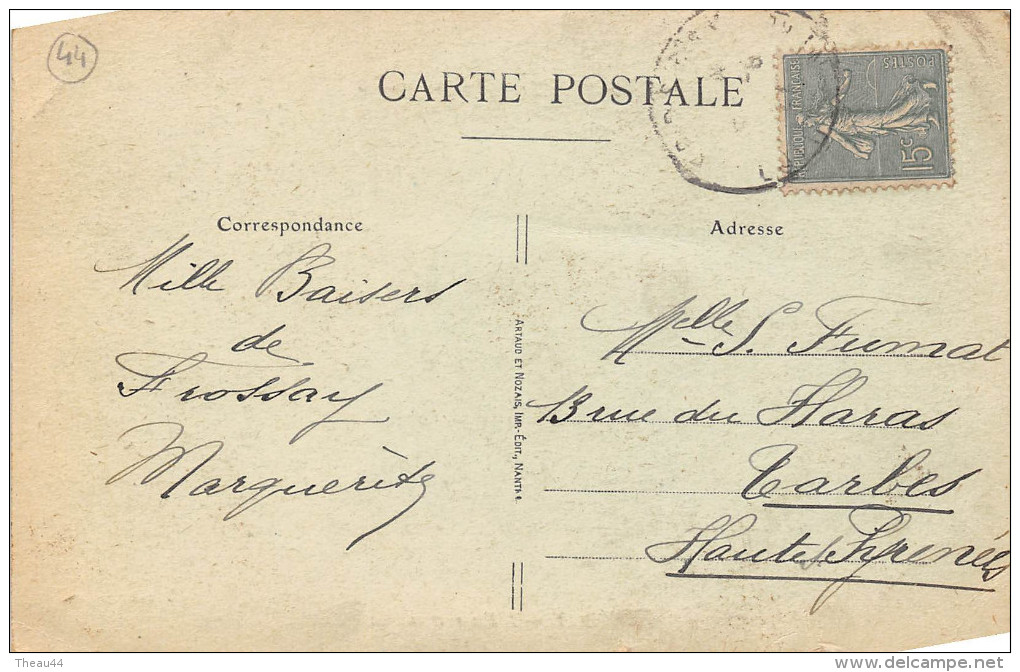 44
CARTE POSTALE
REPUBLIQUE FRANÇAISE
POSTES
15c
Correspondance
Adresse
Mille Baisers
de
Frossay
Marguerite
ARTAUD ET NOZAIS, IMP.-ÉDIT., NANTES
Melle S. Fumat
13 rue du Haras
Tarbes
Hautes Pyrenées
Theau44
www.delcampe.net